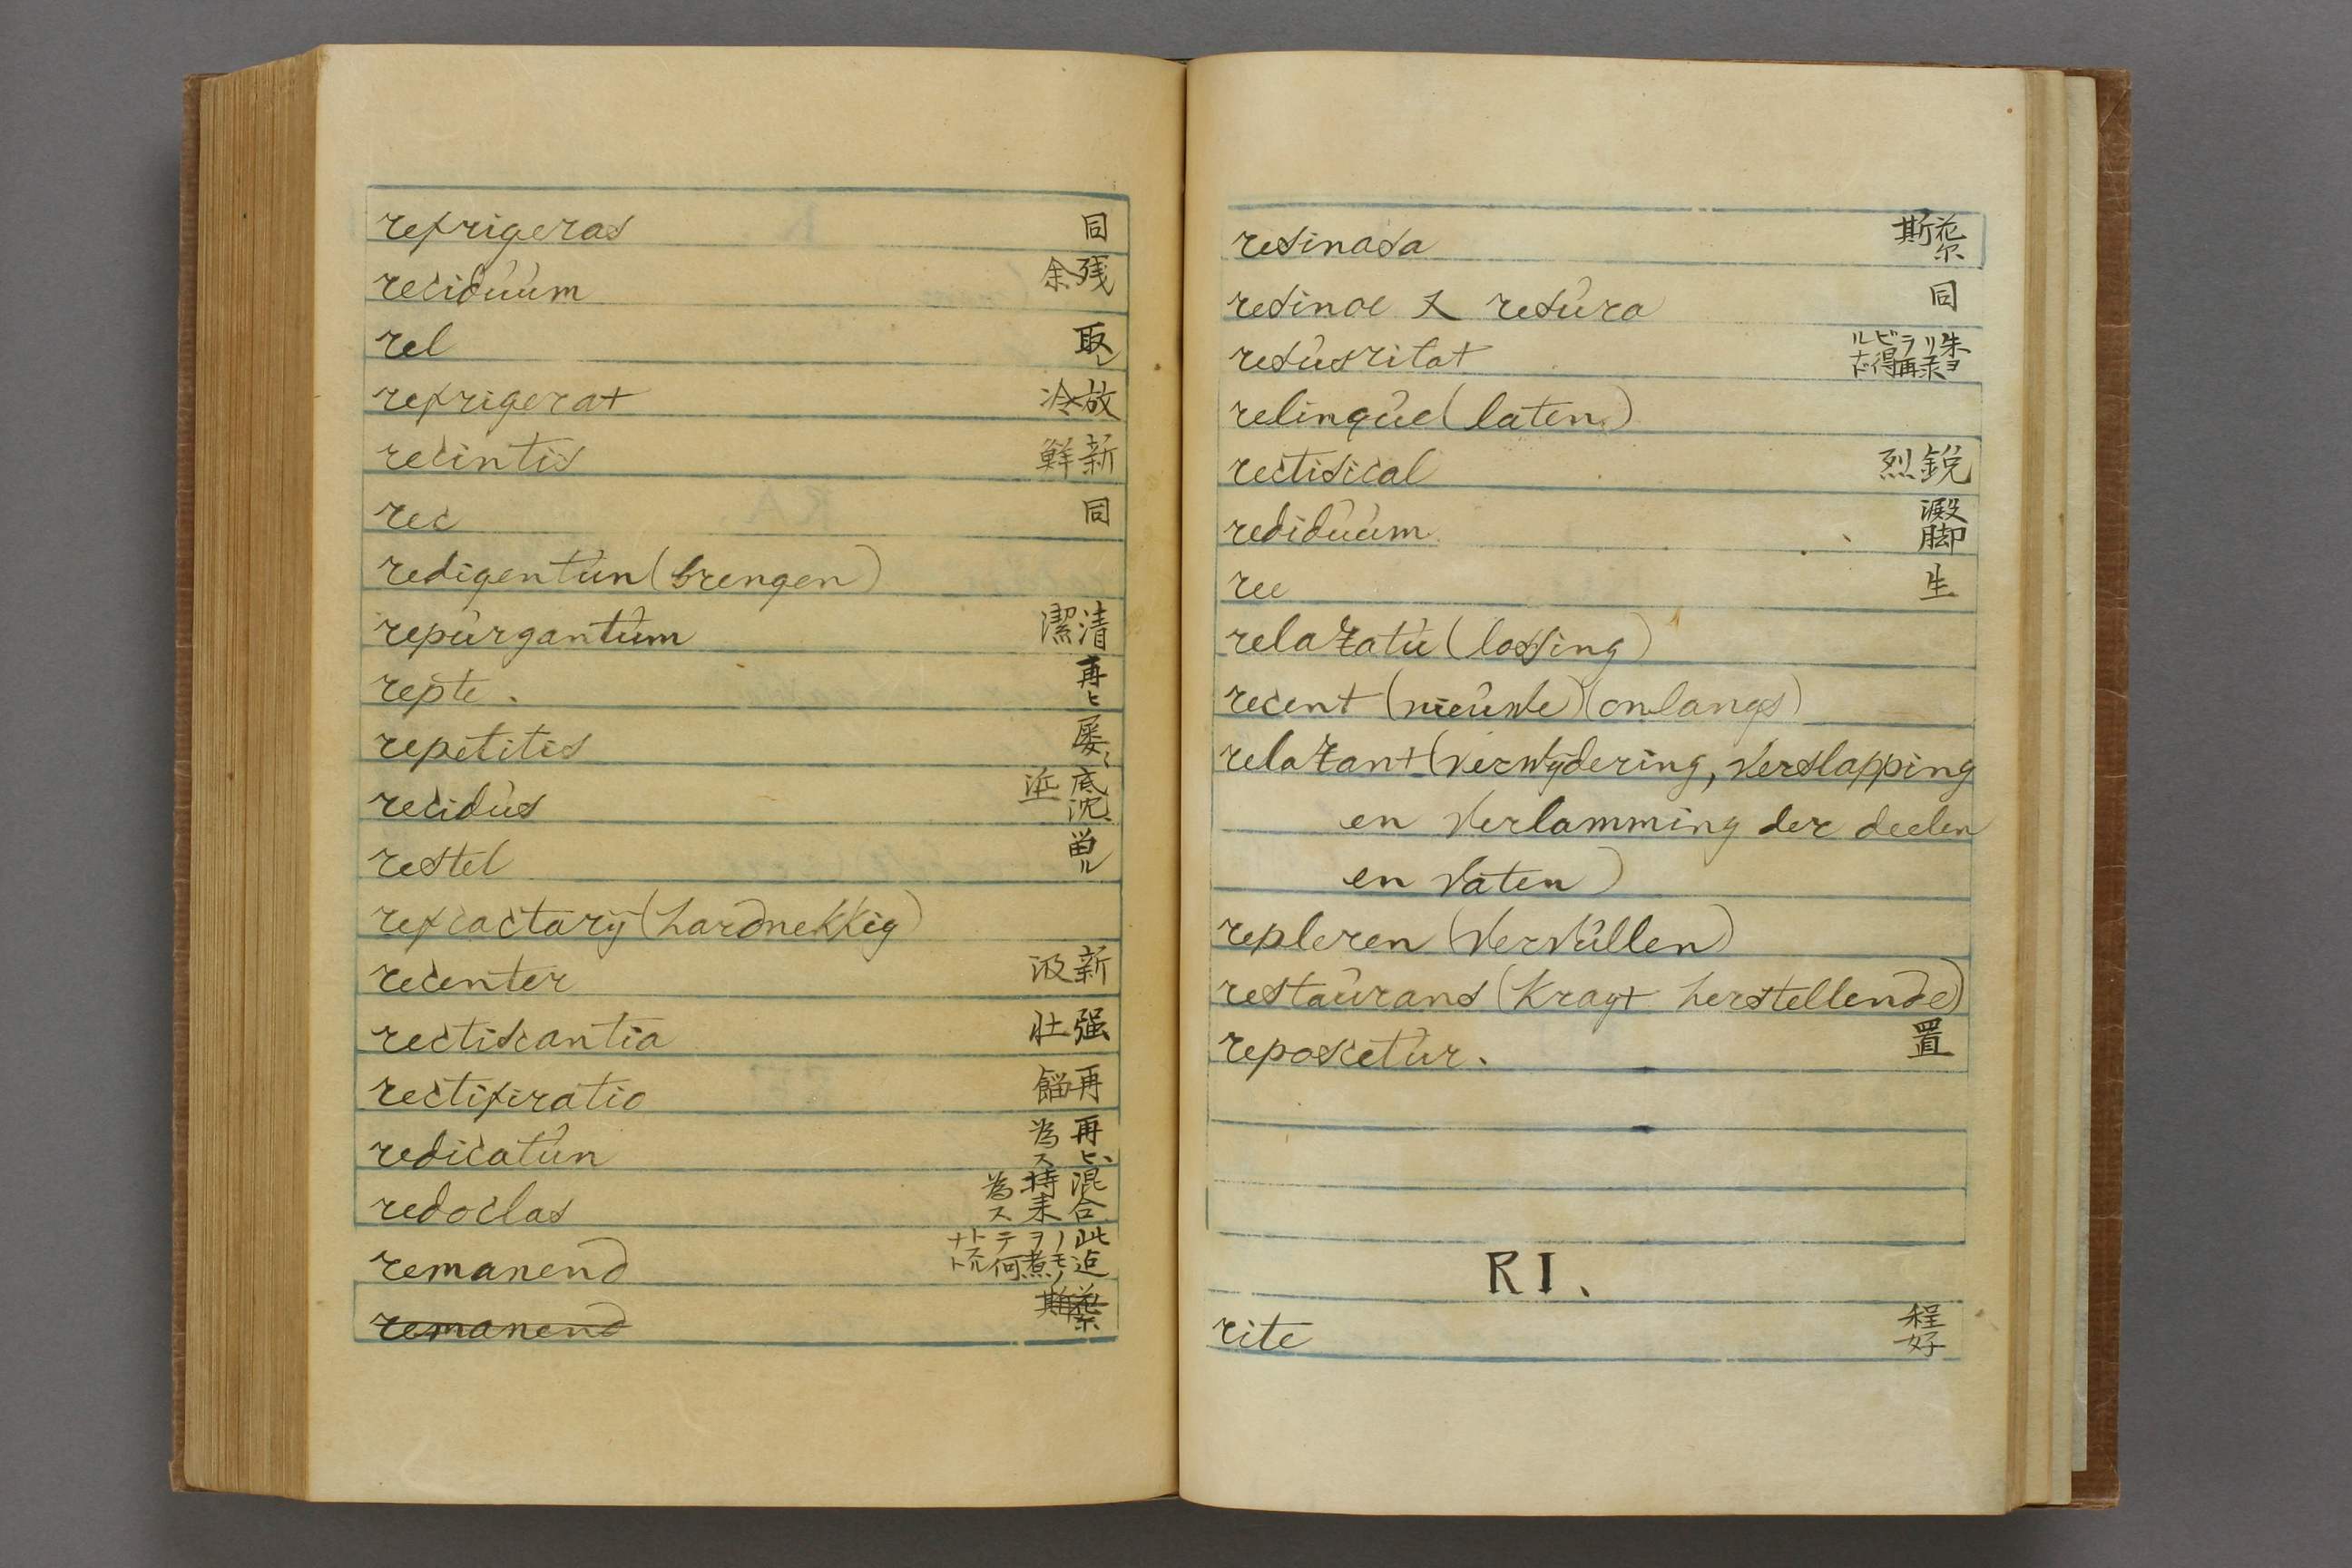 refrigeras 同
reciduum 残余
rel 取レ
refrigerat 放冷
recintis 新鮮
rec 同
redigentun (brengen)
repurgantum 清潔
repte. 再ヒ
repetitis 屡〻
recidus 底沈
restel 畄ル
refcactarÿ (hardnekkig)
recenter 新汲
rectiscantia 强壮
rectifiratio 再餾
redicatun 再ヒ為ス
redoclas 混合持来為ス
remanend 此迠ノモノヲ煮テ何トスルナト
remanend
resinasa 斯
resinoe 又 resura 同
resusritat 朱ヨリ汞ヲ再ビ得ルナド
relinque (laten)
rectisical 鋭烈
rediduum 澱脚
ree 生
relaxatu (lossing)
recent (nieuwe) (onlangs)
relaxant (verwÿdering, verslapping
en verlamming der deelen
en vaten)
repleren (vervullen)
restaurans (kragt herstellende)
reposcetur. 置
RI.
rite 程好